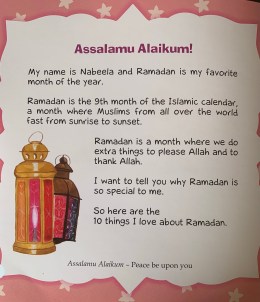 Assalamu Alaikum!
My name is Nabeela and Ramadan is my favorite
month of the year.
Ramadan is the 9th month of the Islamic calendar,
a month where Muslims from all over the world
fast from sunrise to sunset.
Ramadan is a month where we do
extra things to please Allah and to
thank Allah.
I want to tell you why Ramadan is
so special to me.
So here are the
10 things I love about Ramadan.
Assalamu Alaikum - Peace be upon you